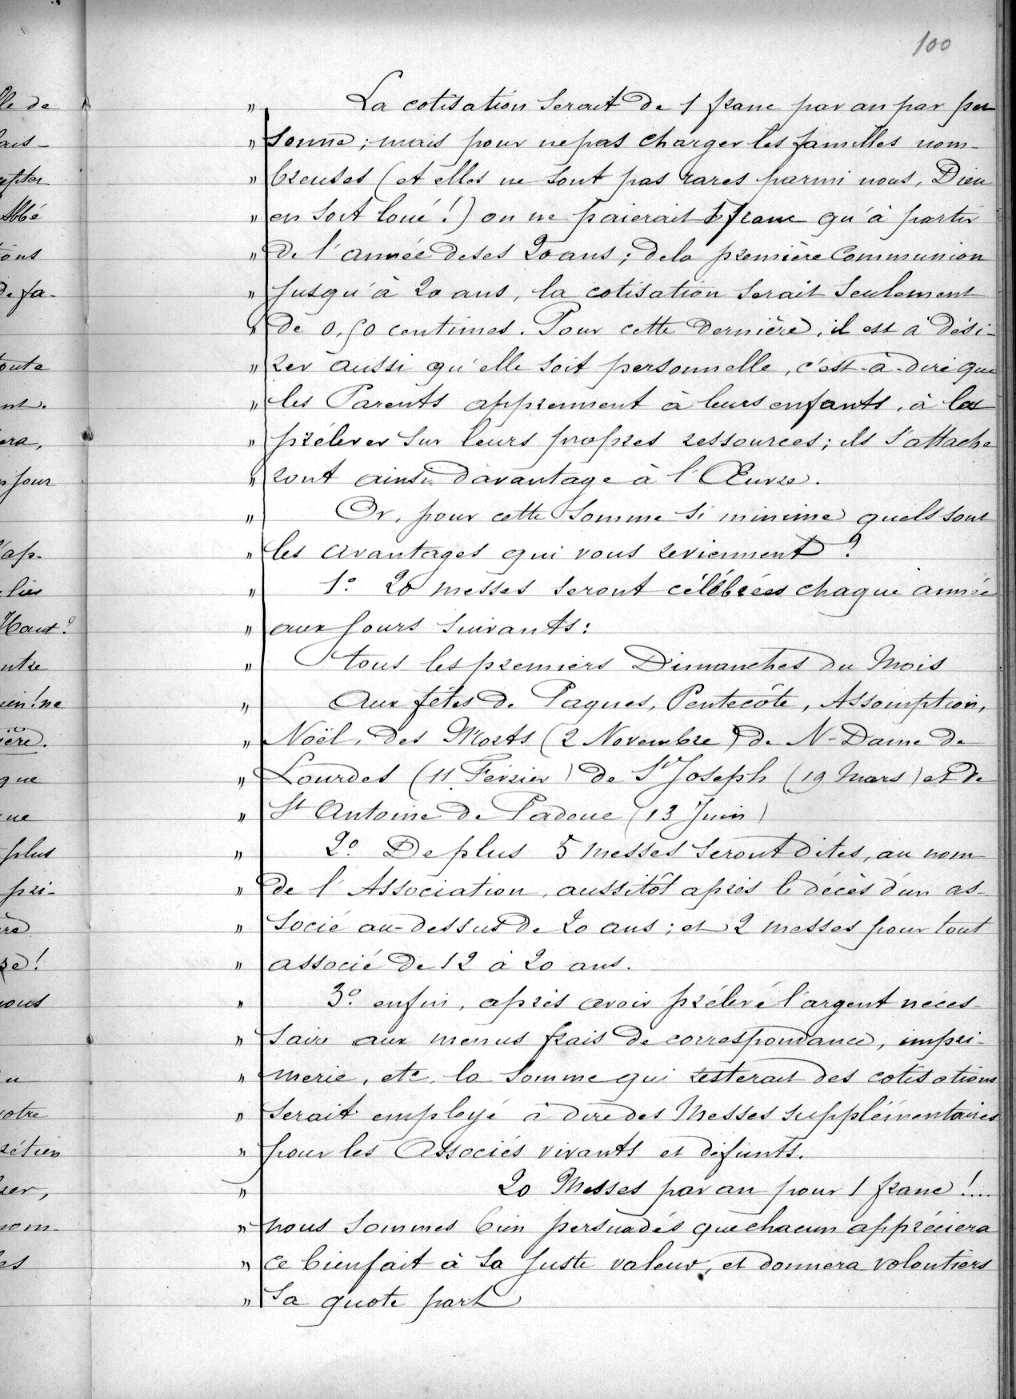 100
" La cotisation serait de 1 franc par an par per
" sonne ; mais pour ne pas charger les familles nom-
" breuses (et elles ne sont pas rares parmi nous, Dieu
" en soit loué !) on ne paierait 1 franc qu'à partir
" de l'année de ses 20 ans ; de la première Communion
" jusqu'à 20 ans, la cotisation serait seulement
" de 0,50 centimes. Pour cette dernière, il est à dési-
" rer aussi qu'elle soit personnelle, c'est-à-dire que
" les Parents apprennent à leurs enfants, à la
" prélever sur leurs propres ressources ; ils s'attache
" ront ainsi davantage à l'Œuvre.
" Or, pour cette somme si minime quels sont
" les avantages qui vous reviennent ?
" 1º 20 messes seront célébrées chaque année
" aux jours suivants :
" tous les premiers Dimanches du Mois
" aux fêtes de Paques, Pentecôte, Assomption,
" Noël, des Morts (2 Novembre) de N-Dame de
" Lourdes (11 Février) de St Joseph (19 Mars) et de
" St Antoine de Padoue (13 Juin)
" 2º De plus 5 messes seront dites, au nom
" de l'Association, aussitôt après le décès d'un as-
" socié au-dessus de 20 ans ; et 2 messes pour tout
" associé de 12 à 20 ans.
" 3º enfin, après avoir prélevé l'argent néces-
" saire aux menus frais de correspondance, impri-
" merie, etc. la somme qui resterait des cotisations
" serait employé à dire des Messes supplémentaires
" pour les Associés vivants et défunts.
" 20 Messes par an pour 1 franc !...
" nous sommes bien persuadés que chacun appréciera
" ce bienfait à sa juste valeur, et donnera volontiers
" sa quote part